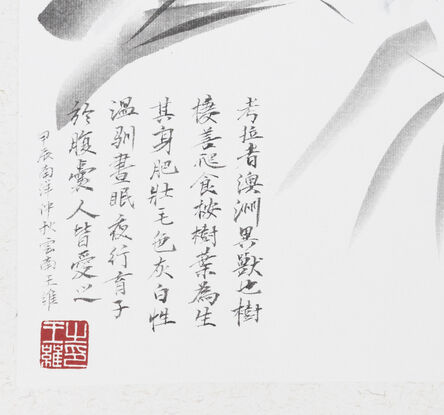 考拉者澳洲異獸也樹
棲善爬食桉樹葉為生
其身肥壯毛色灰白性
溫馴晝眠夜行育子
於腹囊人皆愛之
甲辰南洋仲秋雲南王維
王維之印